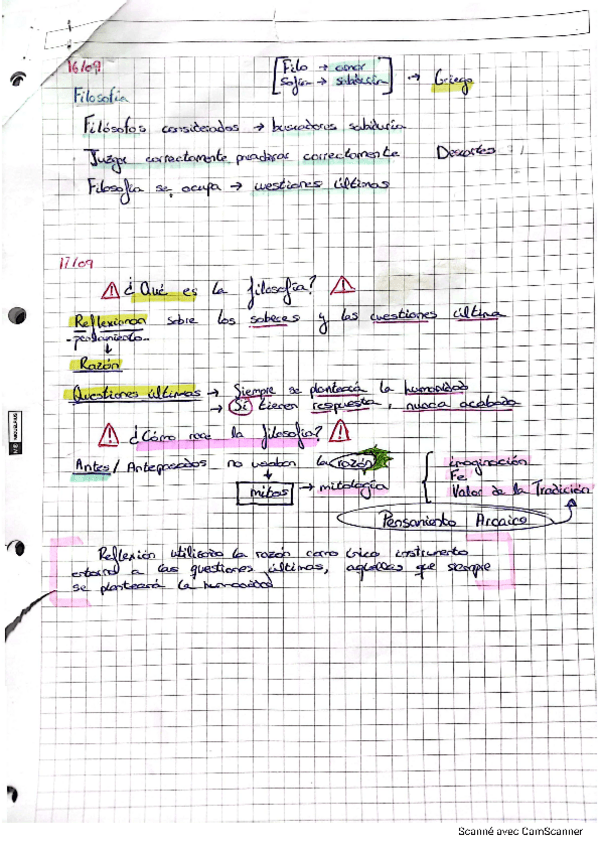 16/09
[Filo → amor
Sofía → sabiduría] → Griego
Filosofía
Filósofos considerados → buscadores sabiduría
Juzgar correctamente correctamente Descartes
Filosofía se ocupa → cuestiones últimas
17/09
⚠ ¿Qué es la filosofía? ⚠
Reflexionar sobre los saberes y las cuestiones última
- pensamiento -
↓
Razón
Questiones últimas → Siempre se planteará la humanidad
→ Si tienen respuesta, nunca acabada
⚠ ¿Cómo nace la filosofía? ⚠
Antes / Antepasados no usaban la razón
↓
mitos → mitología
{ imaginación
Fe
Valor de la Tradición
Pensamiento Arcaico
Reflexión utilizando la razón como único instrumento
entorno a las questiones últimas, aquellas que siempre
se planteará la humanidad
Scanné avec CamScanner